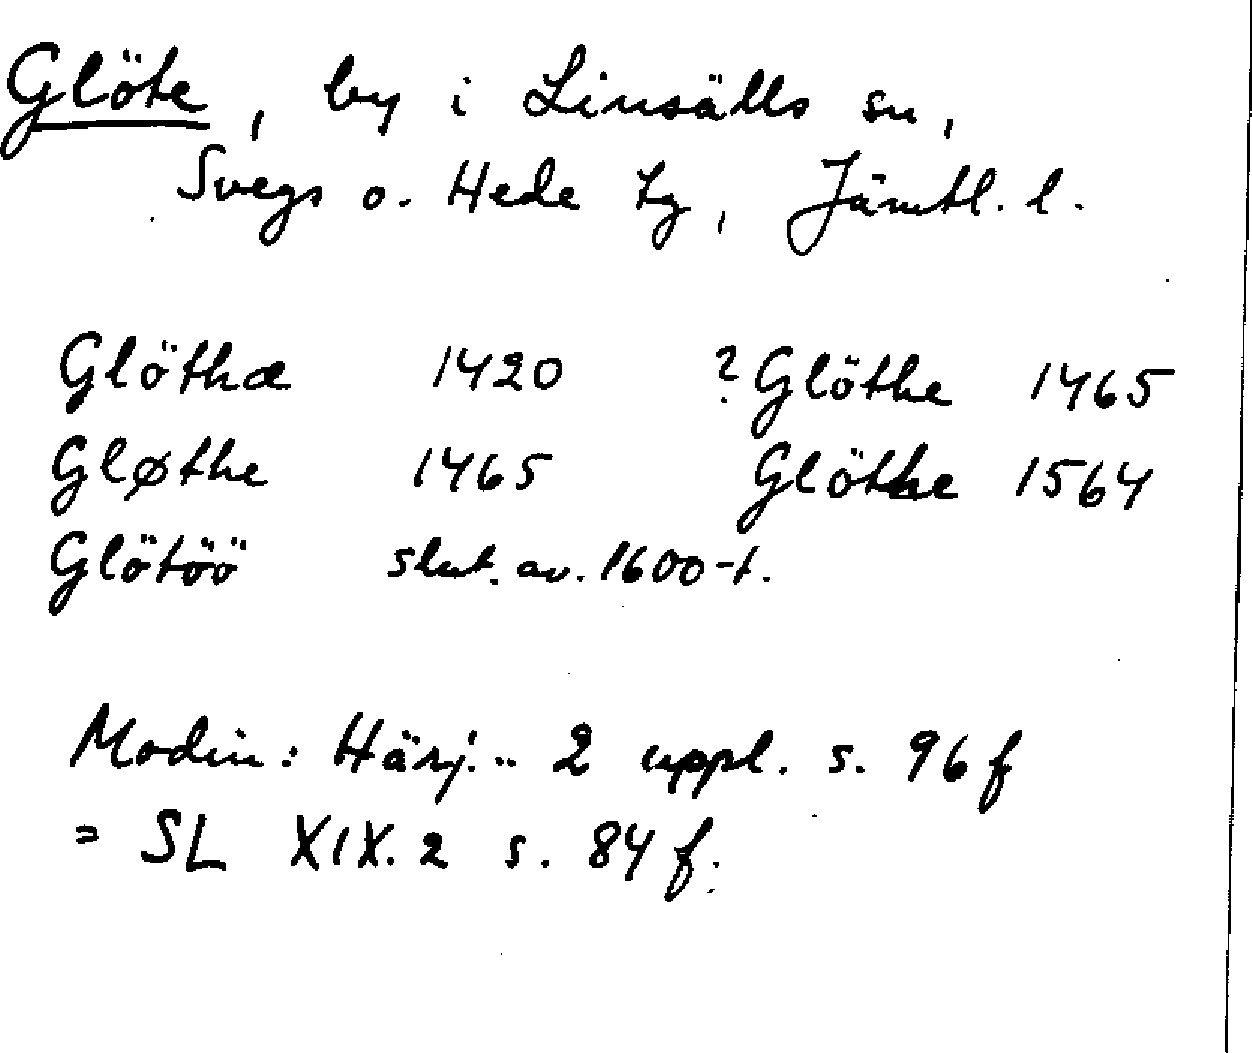 Glöte, by i Linsälls sn,
Svegs o. Hede tg, Jämtl. l.
Glöthæ 1420 ? Glöthe 1465
Gløthe 1465 Glöthe 1564
Glötöö slut. av. 1600-t.
Modin: Härj... 2 uppl. s. 96 f
= SL XIX. 2 s. 84 f.